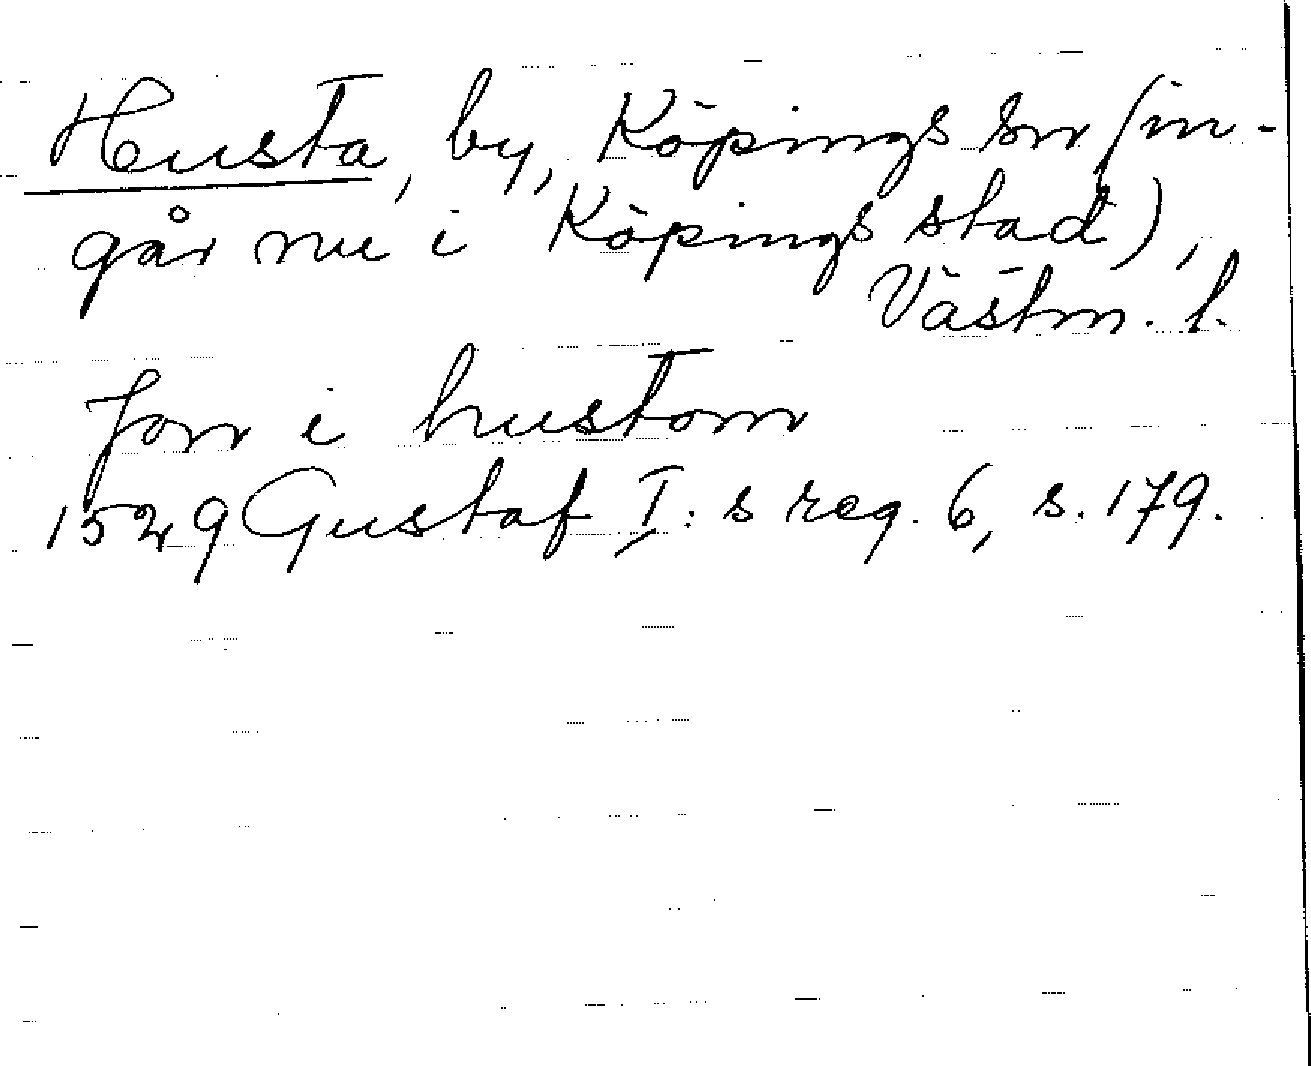 Husta, by, Köpings sn (in-
går nu i Köpings stad),
Västm. l.
Jon i hustom
1529 Gustaf I:s reg. 6, s. 179.